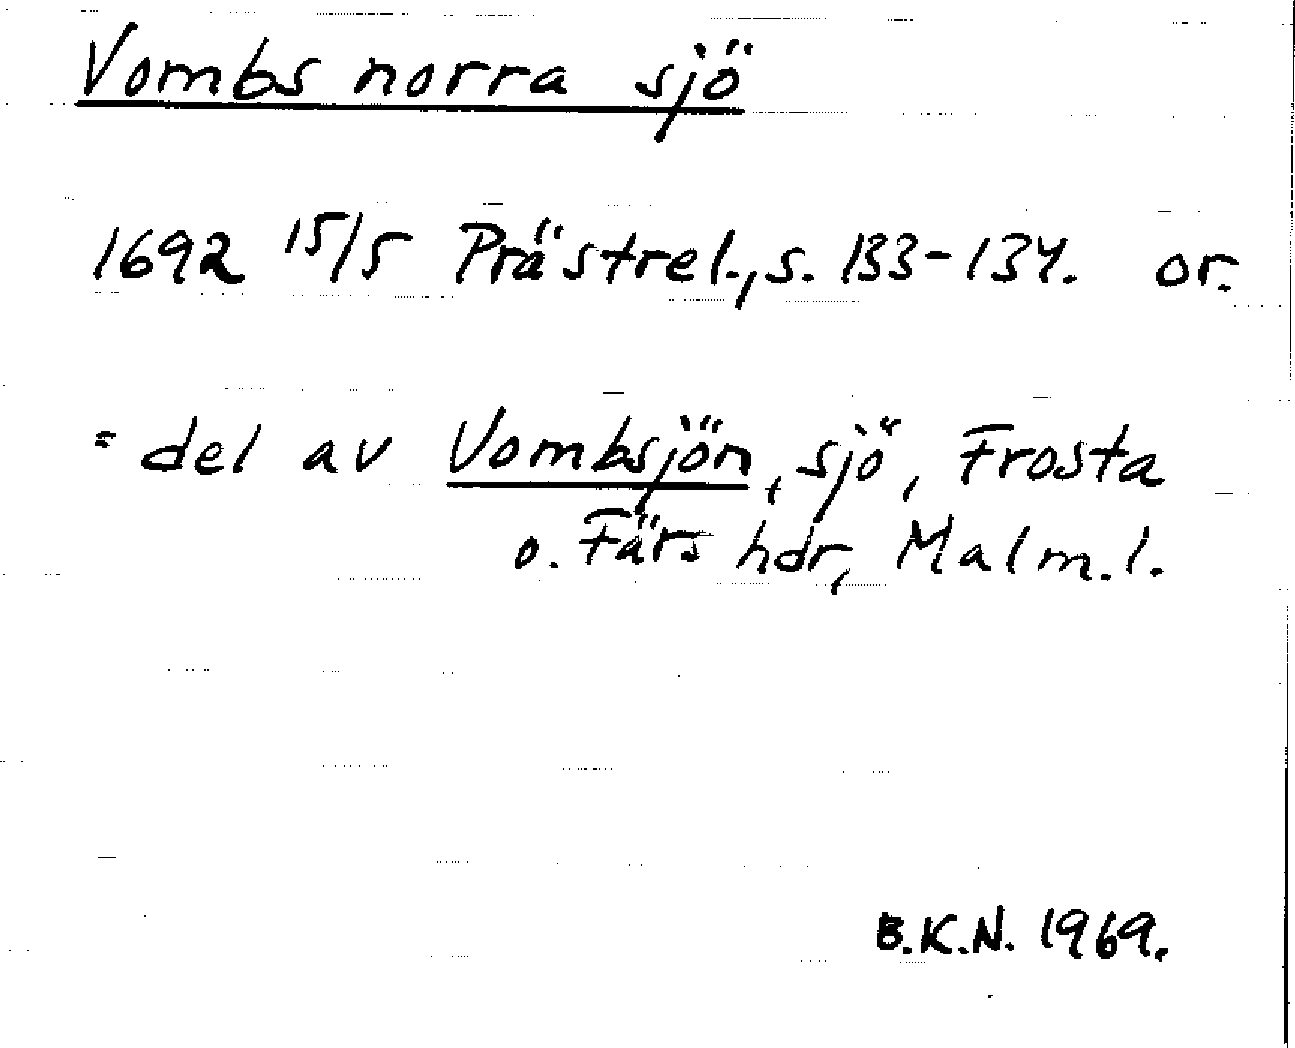 Vombs norra sjö
1692 15/5 Prästrel., s. 133-134. or.
= del av Vombsjön, sjö, Frosta
o. Färs hdr, Malm. l.
B.K.N. 1969.